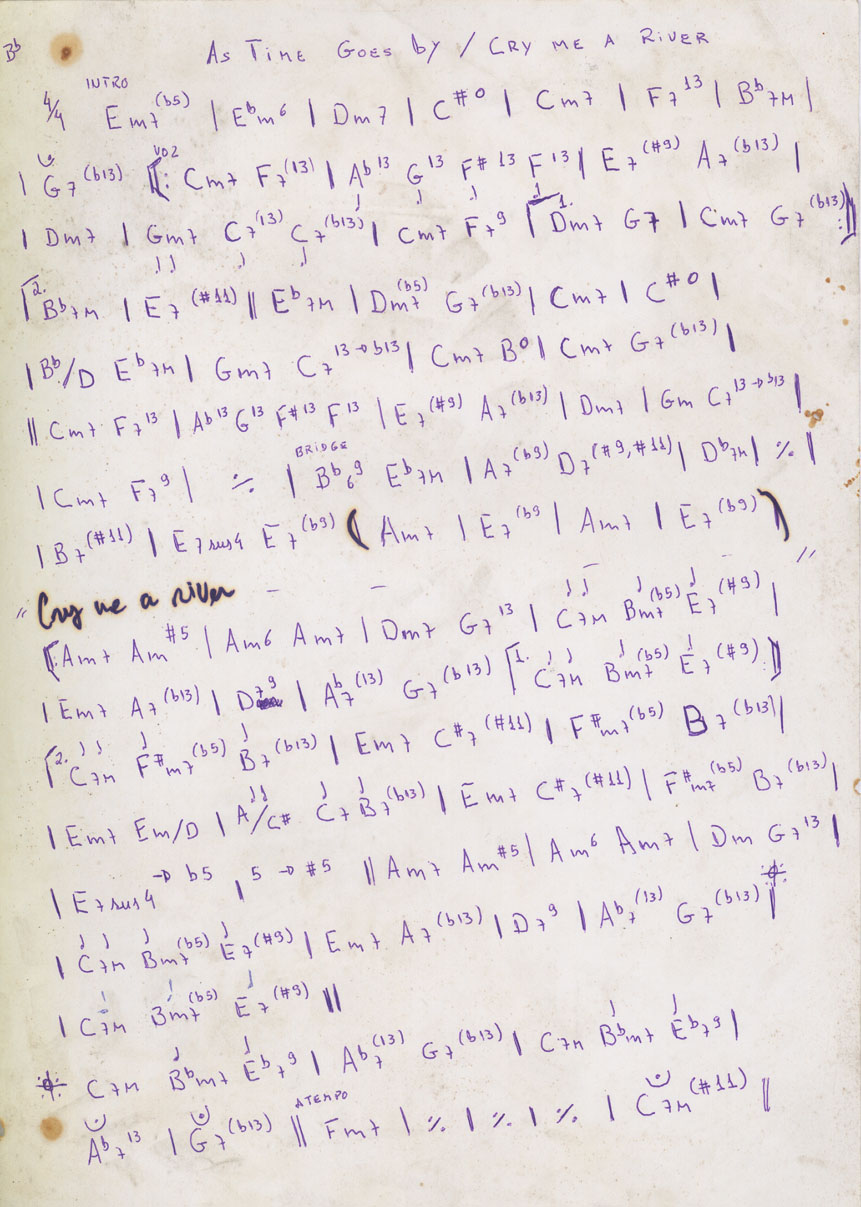 Bb
As Time Goes by / Cry me a River
INTRO
4/4 Em7(b5) | Ebm6 | Dm7 | C#º | Cm7 | F7 13 | Bb7M |
| G7(b13) VOZ [: Cm7 F7(13) | Ab13 G13 F#13 F13 | E7(#9) A7(b13) |
| Dm7 | Gm7 C7(13) C7(b13) | Cm7 F7 9 [1. Dm7 G7 | Cm7 G7(b13) :]
[2. Bb7M | E7(#11) || Eb7M | Dm7(b5) G7(b13) | Cm7 | C#º |
| Bb/D Eb7M | Gm7 C7 13→b13 | Cm7 Bº | Cm7 G7(b13) |
|| Cm7 F7 13 | Ab13 G13 F#13 F13 | E7(#9) A7(b13) | Dm7 | Gm C7 13→b13 |
| Cm7 F7 9 | ٪ | BRIDGE Bb6 9 Eb7M | A7(b9) D7(#9,#11) | Db7M | ٪ ||
| B7(#11) | E7sus4 E7(b9) ( Am7 | E7(b9 | Am7 | E7(b9) )
" Cry me a river "
[: Am7 Am#5 | Am6 Am7 | Dm7 G7 13 | C7M Bm7(b5) E7(#9) |
| Em7 A7(b13) | D7 9 | Ab7(13) G7(b13) [1. C7M Bm7(b5) E7(#9) :]
[2. C7M F#m7(b5) B7(b13) | Em7 C#7(#11) | F#m7(b5) B7(b13) |
| Em7 Em/D | A/C# C7 B7(b13) | Em7 C#7(#11) | F#m7(b5) B7(b13) |
| E7sus4 → b5 | 5 → #5 || Am7 Am#5 | Am6 Am7 | Dm G7 13 |
| C7M Bm7(b5) E7(#9) | Em7 A7(b13) | D7 9 | Ab7(13) G7(b13) ||
| C7M Bm7(b5) E7(#9) ||
C7M Bbm7 Eb7 9 | Ab7(13) G7(b13) | C7M Bbm7 Eb7 9 |
Ab7 13 | G7(b13) || A TEMPO Fm7 | ٪ | ٪ | ٪ | C7M(#11) ||